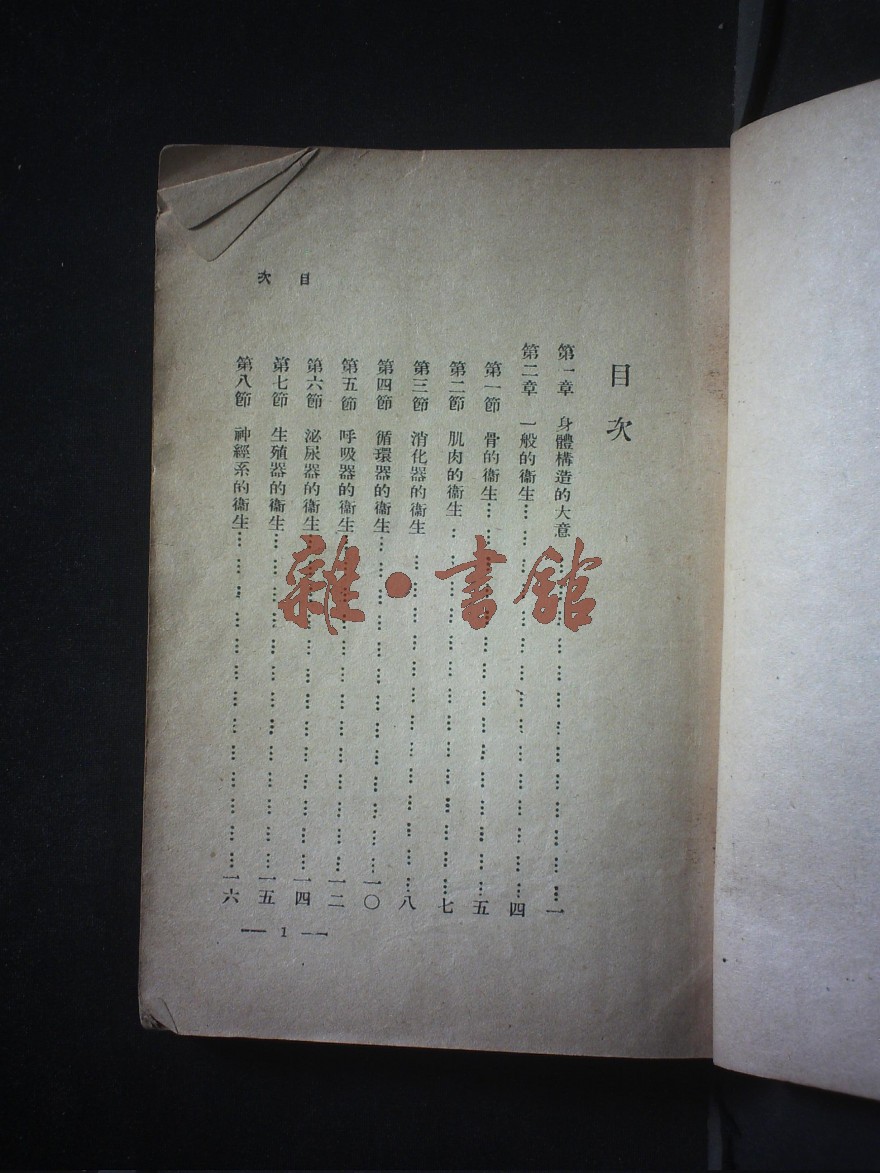 目次
目次
第一章　身體構造的大意…………一
第二章　一般的衞生…………四
第一節　骨的衞生…………五
第二節　肌肉的衞生…………七
第三節　消化器的衞生…………八
第四節　循環器的衞生…………一〇
第五節　呼吸器的衞生…………一二
第六節　泌尿器的衞生…………一四
第七節　生殖器的衞生…………一五
第八節　神經系的衞生…………一六
— 1 —
雜·書館